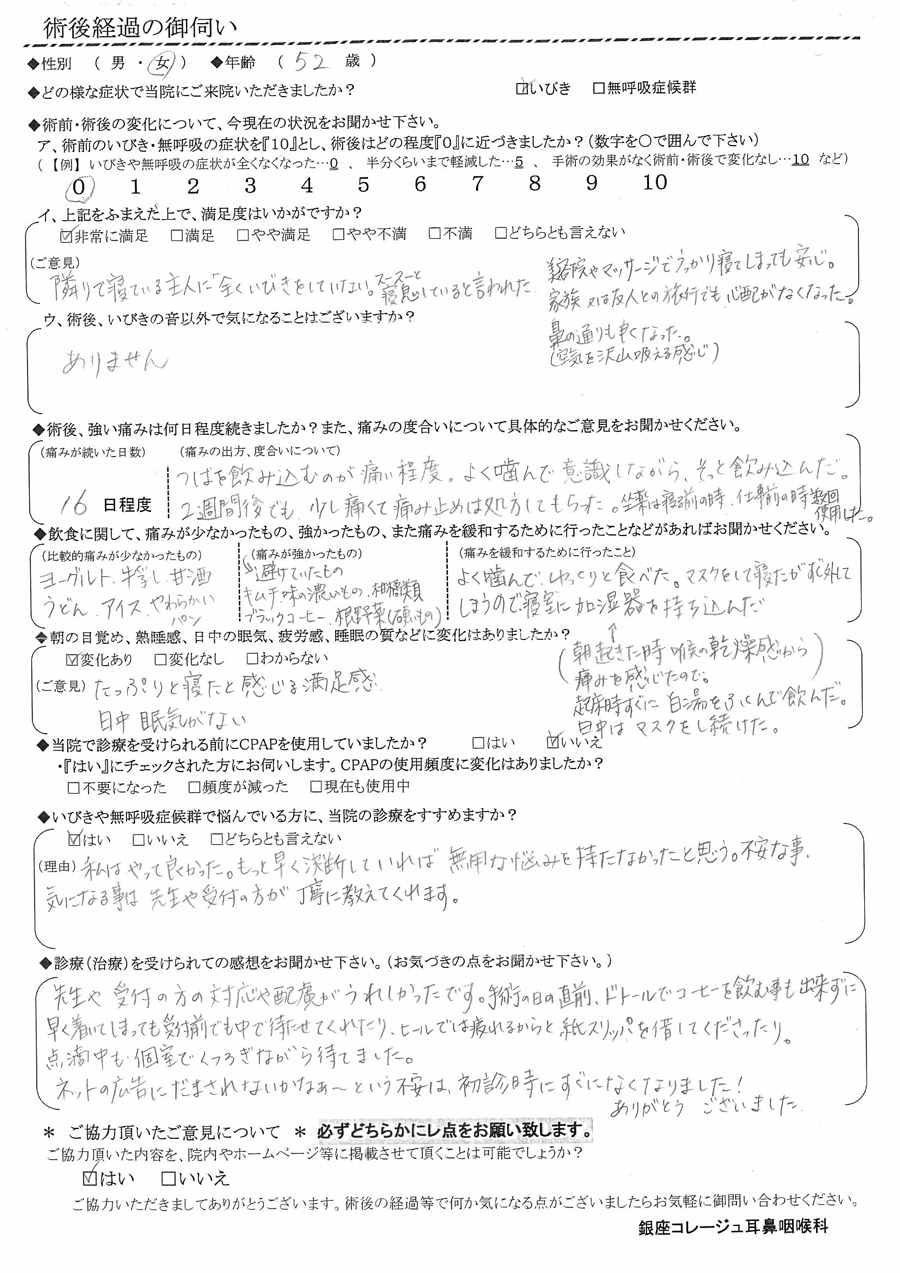 術後経過の御伺い
◆性別 （ 男 ・ 女 ） ◆年齢 （ 52 歳 ）
◆どの様な症状で当院にご来院いただきましたか？ ☑いびき □無呼吸症候群
◆術前・術後の変化について、今現在の状況をお聞かせ下さい。
ア、術前のいびき・無呼吸の症状を『10』とし、術後はどの程度『0』に近づきましたか？（数字を○で囲んで下さい）
（【例】いびきや無呼吸の症状が全くなくなった…0 、 半分くらいまで軽減した…5 、 手術の効果がなく術前・術後で変化なし…10 など）
0 1 2 3 4 5 6 7 8 9 10
イ、上記をふまえた上で、満足度はいかがですか？
☑非常に満足 □満足 □やや満足 □やや不満 □不満 □どちらとも言えない
（ご意見）
隣りで寝ている主人に「全くいびきをしていない。スースーと寝息していると言われた
美容院やマッサージでうっかり寝てしまっても安心。
家族又は友人との旅行でも心配がなくなった。
鼻の通りも良くなった。
（空気を沢山吸える感じ）
ウ、術後、いびきの音以外で気になることはございますか？
ありません
◆術後、強い痛みは何日程度続きましたか？また、痛みの度合いについて具体的なご意見をお聞かせください。
（痛みが続いた日数） （痛みの出方、度合いについて）
16 日程度
つばを飲み込むのが痛い程度。よく噛んで意識しながら、そっと飲み込んだ。
2週間後でも、少し痛くて痛み止めは処方してもらった。坐薬は寝る前の時、仕事前の時数回使用した。
◆飲食に関して、痛みが少なかったもの、強かったもの、また痛みを緩和するために行ったことなどがあればお聞かせください。
（比較的痛みが少なかったもの） （痛みが強かったもの） （痛みを緩和するために行ったこと）
ヨーグルト、牛乳、甘酒
うどん、アイス、やわらかいパン
避けていたもの
キムチ、味の濃いもの、柑橘類
ブラックコーヒー、根野菜（硬いもの）
よく噛んで、ゆっくりと食べた。マスクをして寝たがすぐ外して
しまうので寝室に加湿器を持ち込んだ
↑
（朝起きた時 喉の乾燥感から
痛みを感じたので。）
起床時すぐに白湯をふくんで飲んだ。
日中はマスクをし続けた。
◆朝の目覚め、熟睡感、日中の眠気、疲労感、睡眠の質などに変化はありましたか？
☑変化あり □変化なし □わからない
（ご意見） たっぷりと寝たと感じる満足感
日中 眠気がない
◆当院で診療を受けられる前にCPAPを使用していましたか？ □はい ☑いいえ
・『はい』にチェックされた方にお伺いします。CPAPの使用頻度に変化はありましたか？
□不要になった □頻度が減った □現在も使用中
◆いびきや無呼吸症候群で悩んでいる方に、当院の診療をすすめますか？
☑はい □いいえ □どちらとも言えない
（理由） 私はやって良かった。もっと早く決断していれば 無用な悩みを持たなかったと思う。不安な事、
気になる事は 先生や受付の方が丁寧に教えてくれます。
◆診療（治療）を受けられての感想をお聞かせ下さい。（お気づきの点をお聞かせ下さい。）
先生や受付の方の対応や配慮がうれしかったです。手術の日の直前、ドトールでコーヒーを飲む事も出来ずに
早く着いてしまっても受付前でも中で待たせてくれたり、ヒールでは疲れるからと紙スリッパを借してくださったり。
点滴中も個室でくつろぎながら待てました。
ネットの広告にだまされないかなぁ〜という不安は、初診時にすぐになくなりました！
ありがとう ございました
＊ ご協力頂いたご意見について ＊ 必ずどちらかにレ点をお願い致します。
ご協力頂いた内容を、院内やホームページ等に掲載させて頂くことは可能でしょうか？
☑はい □いいえ
ご協力いただきましてありがとうございます。術後の経過等で何か気になる点がございましたらお気軽に御問い合わせください。
銀座コレージュ耳鼻咽喉科